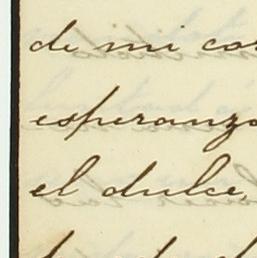 de mi cor
esperanza
el dulce,